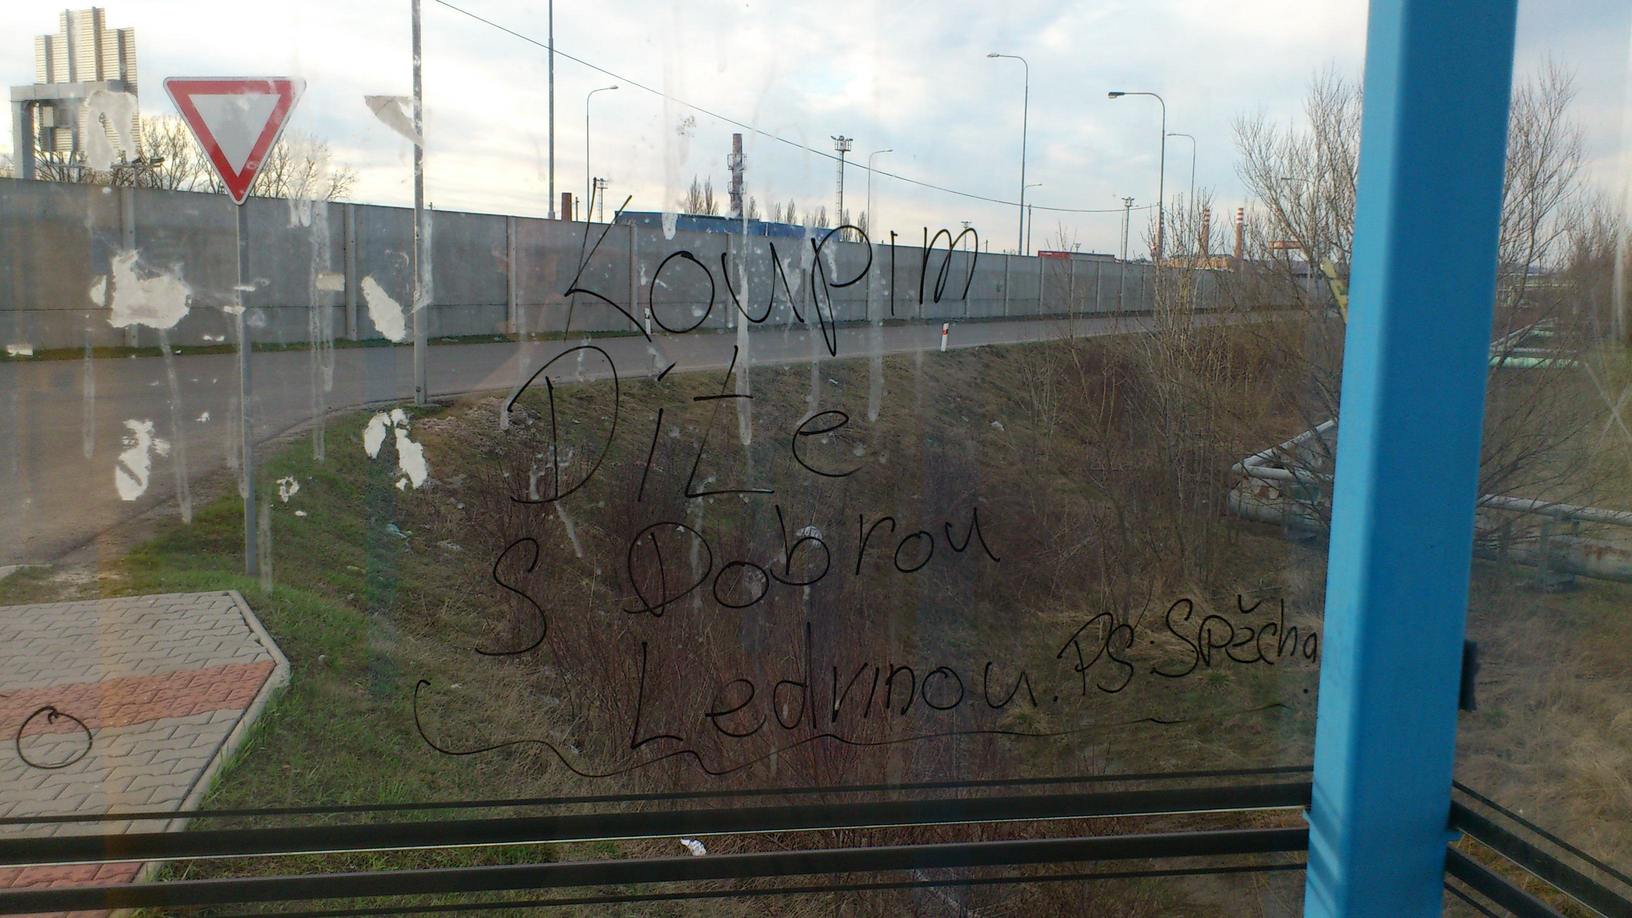 Koupím
Díže
S Dobrou
Ledvinou. PS: Spěchá.